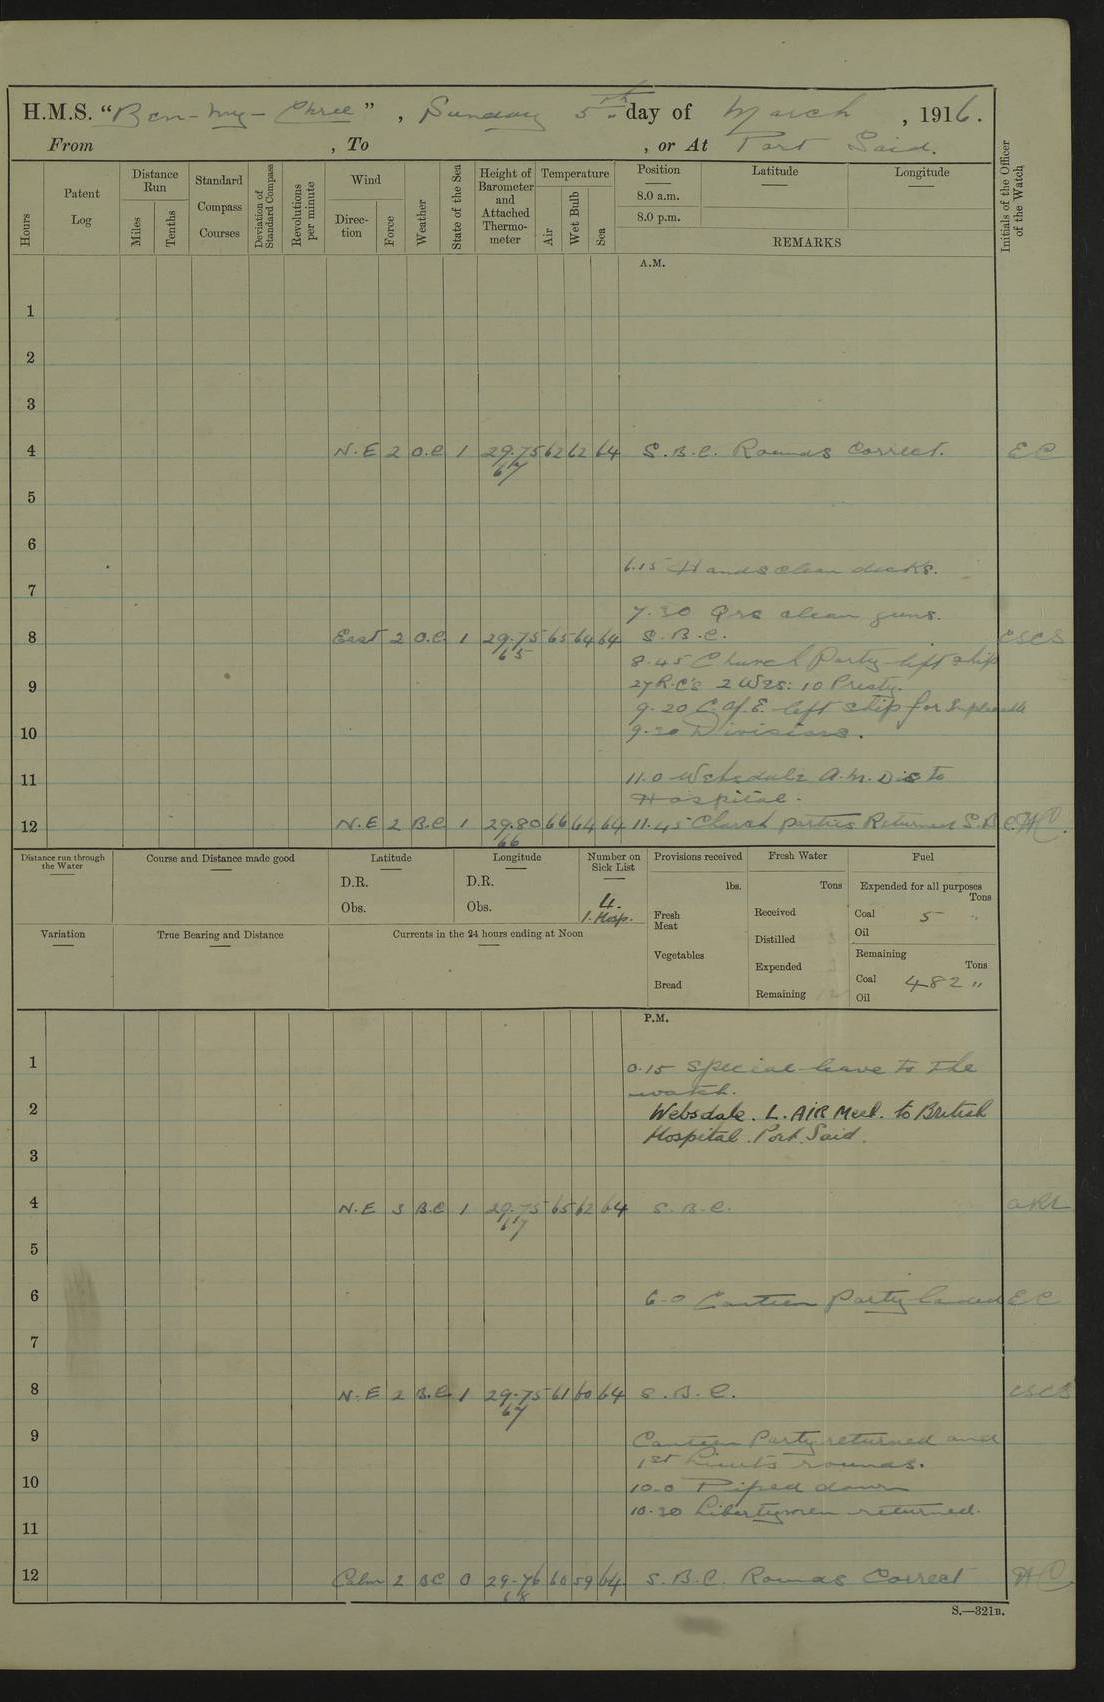 H.M.S. "Ben-my-Chree", Sunday 5th day of March, 1916.
From , To , or At Port Said.
Hours
Patent Log
Distance Run
Miles
Tenths
Standard Compass Courses
Deviation of Standard Compass
Revolutions per minute
Wind
Direc-tion
Force
Weather
State of the Sea
Height of Barometer and Attached Thermo-meter
Temperature
Air
Wet Bulb
Sea
Position
8.0 a.m.
8.0 p.m.
Latitude
Longitude
REMARKS
Initials of the Officer of the Watch
A.M.
1
2
3
4 N.E 2 O.C 1 29.75 62 62 64 S.B.C. Rounds correct. EC
67
5
6
6.15 Hands clean decks.
7
7.30 Qrs clean guns.
8 East 2 O.C. 1 29.75 65 64 64 S.B.C. CSCS
65
8.45 Church Party left ship
9 27 R.C's 2 Wes: 10 Presty.
9.20 C. of E. left ship for
10 9.20 Divisions.
11 11.0 Websdale A.M. Dis to
Hospital.
12 N.E 2 B.C 1 29.80 66 64 64 11.45 Church parties Returned S.B.C. HC.
66
Distance run through the Water
Course and Distance made good
Latitude
D.R.
Obs.
Longitude
D.R.
Obs.
Number on Sick List
4.
1. Hosp.
Provisions received
lbs.
Fresh Meat
Vegetables
Bread
Fresh Water
Tons
Received
Distilled
Expended
Remaining
Fuel
Expended for all purposes
Tons
Coal 5 "
Oil
Remaining
Tons
Coal 482 "
Oil
Variation
True Bearing and Distance
Currents in the 24 hours ending at Noon
P.M.
1 0.15 Special leave to the
watch.
2 Websdale. L. AIR Mech. to British
Hospital. Port. Said.
3
4 N.E 3 B.C 1 29.75 65 62 64 S.B.C. ARL
67
5
6 6-0 Canteen Party landed EC
7
8 N.E 2 B.C. 1 29.75 61 60 64 S.B.C. CSCS
67
9 Canteen Party returned and
1st Lieut's rounds.
10 10-0 Piped down
10.30 Libertymen returned.
11
12 Calm 2 BC 0 29-76 60 59 64 S.B.C. Rounds Correct HC
68
S.—321B.